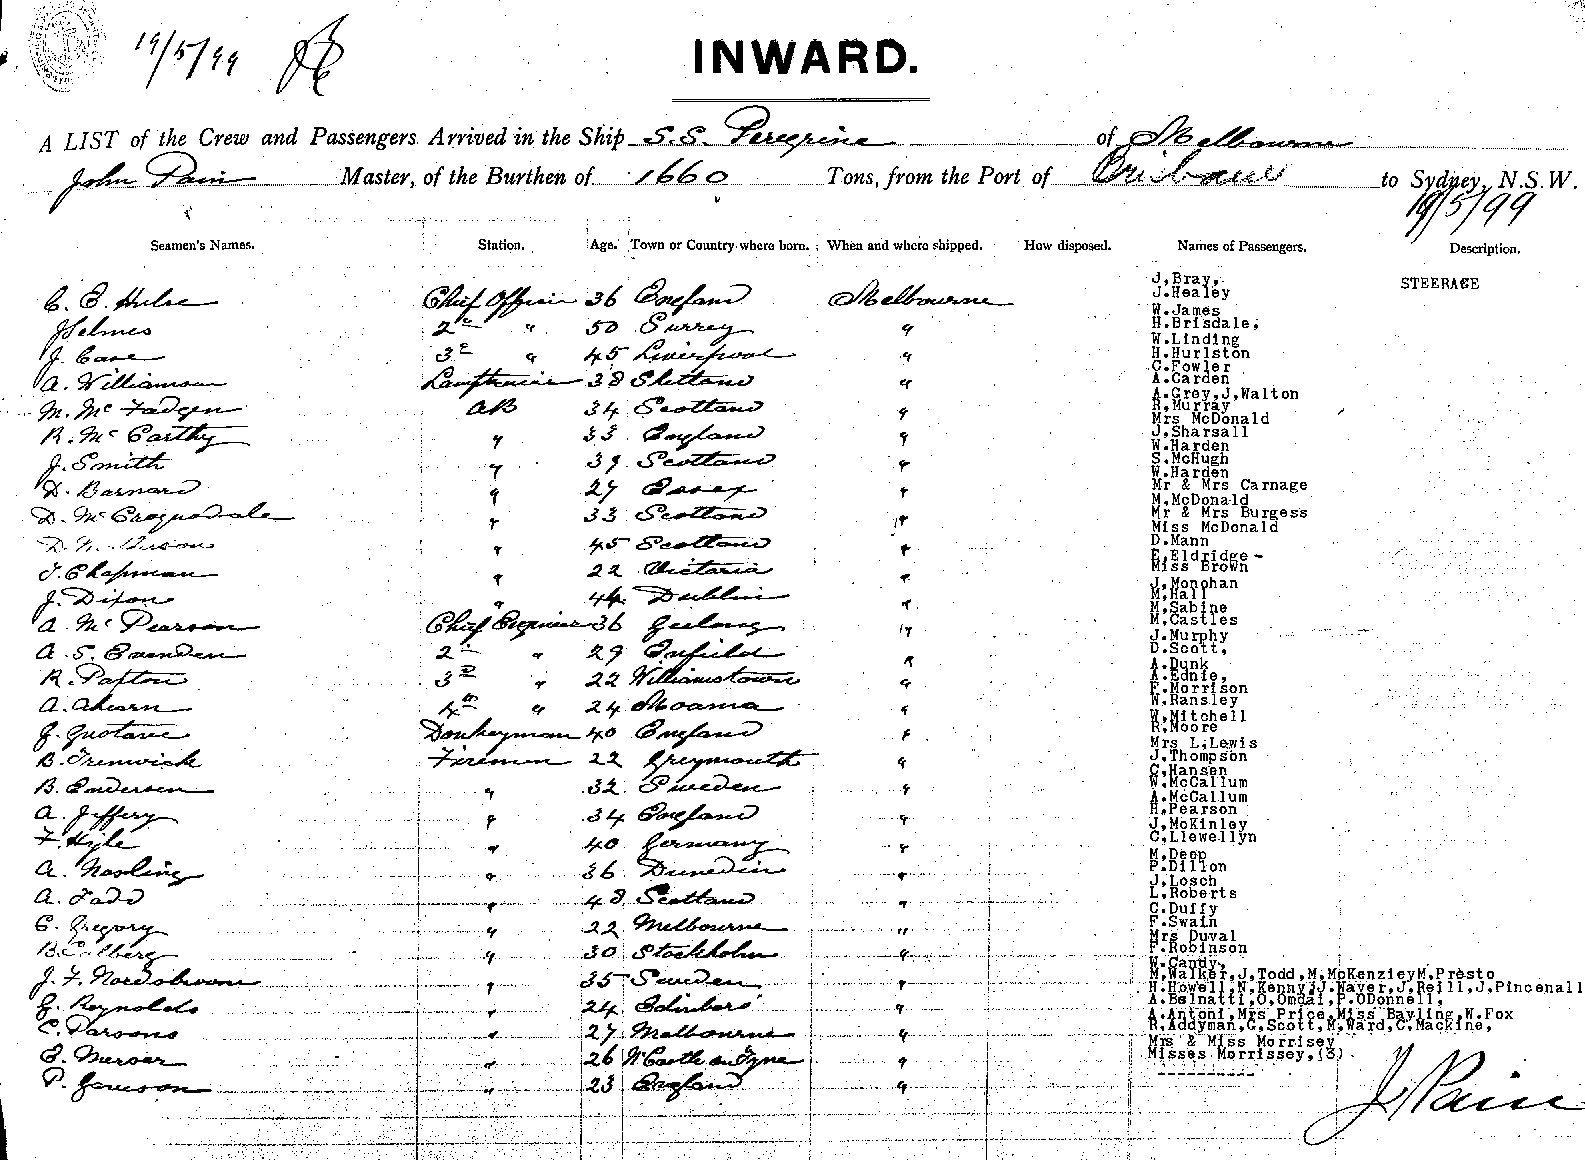 19/5/99
INWARD.
A LIST of the Crew and Passengers Arrived in the Ship S.S. Peregrine of Melbourne
John Pain Master, of the Burthen of 1660 Tons, from the Port of Brisbane to Sydney, N.S.W.
19/5/99
Seamen's Names. Station. Age. Town or Country where born. When and where shipped. How disposed. Names of Passengers. Description.
J,Bray,
STEERAGE
C. E. Hulse Chief Officer 36 England Melbourne J.Healey
W.James
J Selmes 2nd " 50 Surrey " H.Brisdale,
W.Linding
J. Case 3rd " 45 Liverpool " H.Hurlston
C.Fowler
A. Williamson Lamptrimmer 38 Shetland " A.Carden
A.Grey,J,Walton
M. McFadgen AB 34 Scotland " R,Murray
Mrs McDonald
R. McCarthy " 33 England " J,Sharsall
W.Harden
J. Smith " 39 Scotland " S.McHugh
W.Harden
D. Barnard " 27 Essex " Mr & Mrs Carnage
M.McDonald
D. McCorquodale " 33 Scotland " Mr & Mrs Burgess
Miss McDonald
45 Scotland " D.Mann
E,Eldridge -
T. Chapman " 22 Victoria " Miss Brown
J,Monohan
J. Dixon " 44 Dublin " M,Hall
M,Sabine
A. McPearson Chief Engineer 36 Geelong " M,Castles
J.Murphy
A. S. 2nd " 29 Enfield " D.Scott,
A.Dunk
R. Paxton 3rd " 22 Williamstown " A.Ednie,
F.Morrison
A. Ahearn 4th " 24 Moama " W,Ransley
W,Mitchell
J. Gustave Donkeyman 40 England " R,Moore
Mrs L,Lewis
B. Trenwick Firemen 22 Greymouth " J.Thompson
C,Hansen
B. Andersen " 32 Sweden " W.McCallum
A.McCallum
A. Jeffery " 34 England " H,Pearson
J,McKinley
F. Hyle " 40 Germany " C,Llewellyn
M,Deep
A. Nosling " 36 Dunedin " P.Dillon
J,Losch
A. Tadd " 48 Scotland " L,Roberts
C.Duffy
G. Gregory " 22 Melbourne " F.Swain
Mrs Duval
" 30 Stockholm " F.Robinson
W.Candy,
J. F. Nordstrom " 35 Sweden " M,Walker,J,Todd,M,McKenzieyM,Presto
H.Howell,N,Kenny,J.Waver,J.Reill,J.Pincenall
G. Reynolds " 24 Edinboro' " A.Belnatti,O.Omdai,P.ODonnell,
A.Antoni,Mrs Price,Miss Bayling,W.Fox
C. Parsons " 27 Melbourne " R,Addyman,G.Scott,M,Ward,C,Mackine,
Mrs & Miss Morrisey
E. Mercer " 26 N'Castle on Tyne " Misses Morrissey,(3)
P. Jameson " 23 England "
J Pain